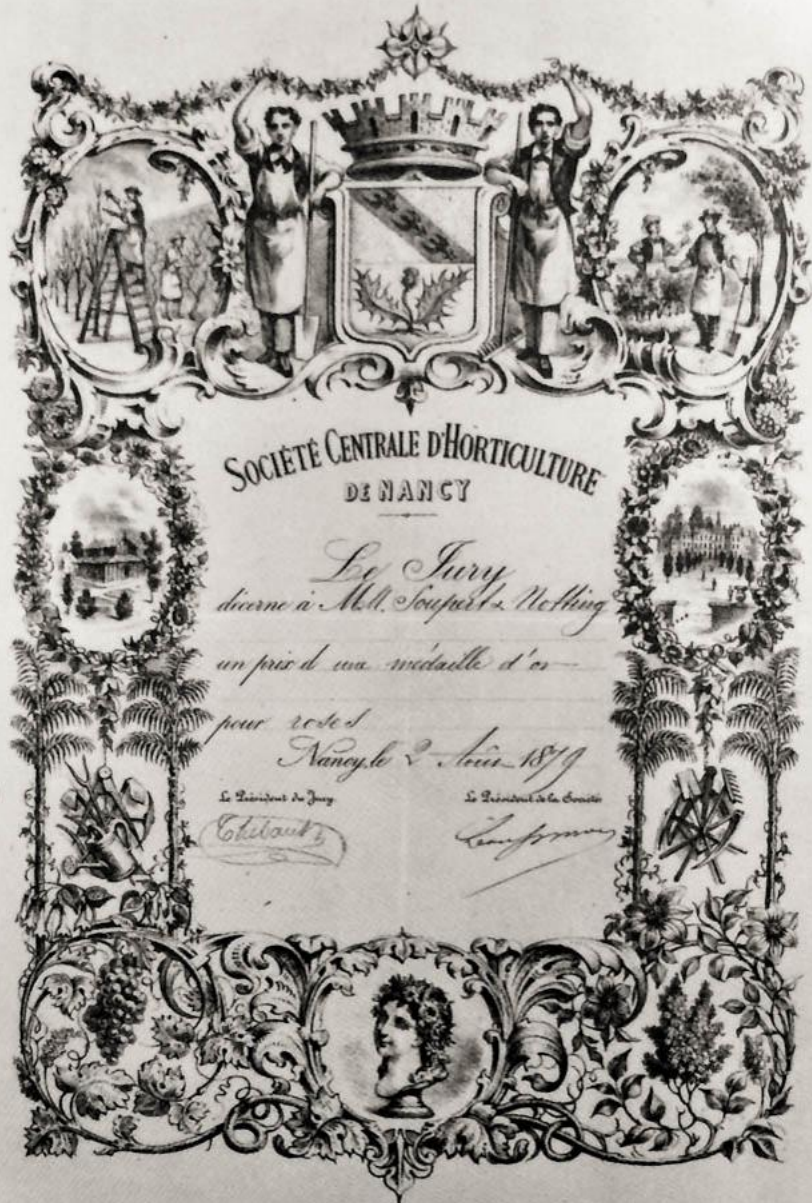 SOCIÉTÉ CENTRALE D'HORTICULTURE
DE NANCY
Le Jury
décerne à M.M. Soupert & Notting
un prix d une médaille d'or
pour roses
Nancy, le 2 Août 1879
Le Président du Jury
Le Président de la Société
Thibault